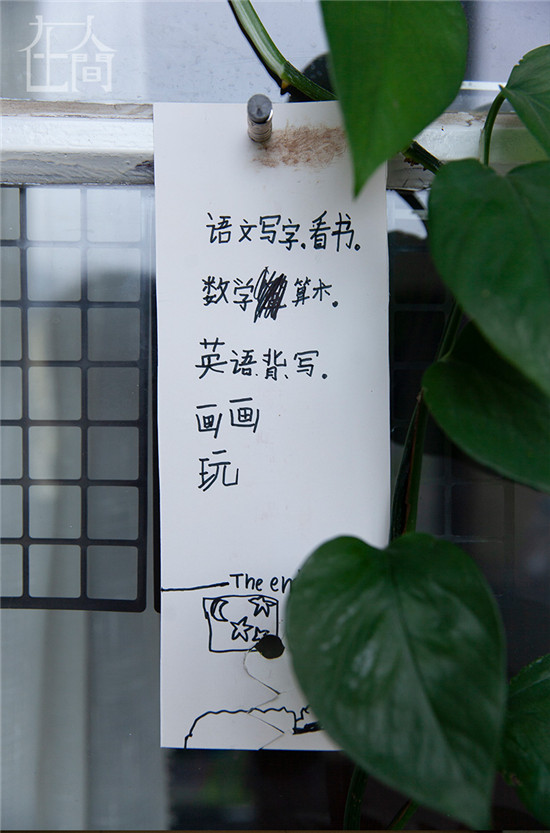 在人間
语文写字,看书。
数学 算术。
英语、背、写。
画画
玩
The en